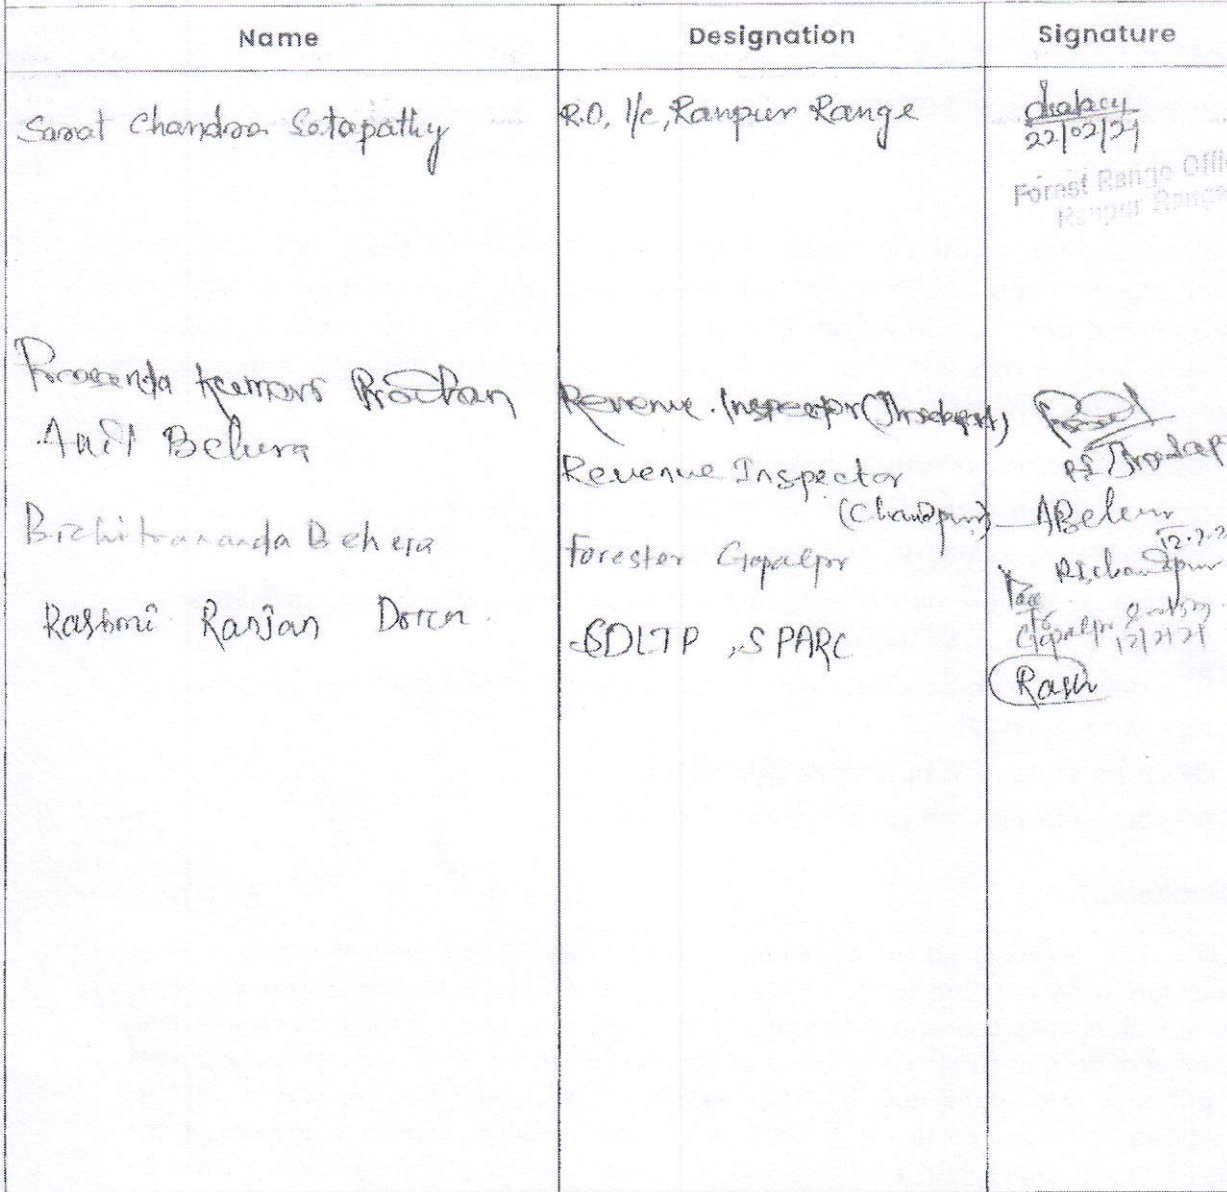 Name Designation Signature
Sarat Chandra Satapathy R.O. I/c, Ranpur Range
22/02/21
Forest Range Offi
Ranpur Range
Kumar Pradhan Revenue Inspector
Anil Behera
Revenue Inspector
(Chandpur) ABehera
Bichitrananda Behera Forester Gopalpr
RI, Chandpur
Gopalpr
12/2/21
Rashmi Ranjan Dora SDLTP, SPARC
Rash